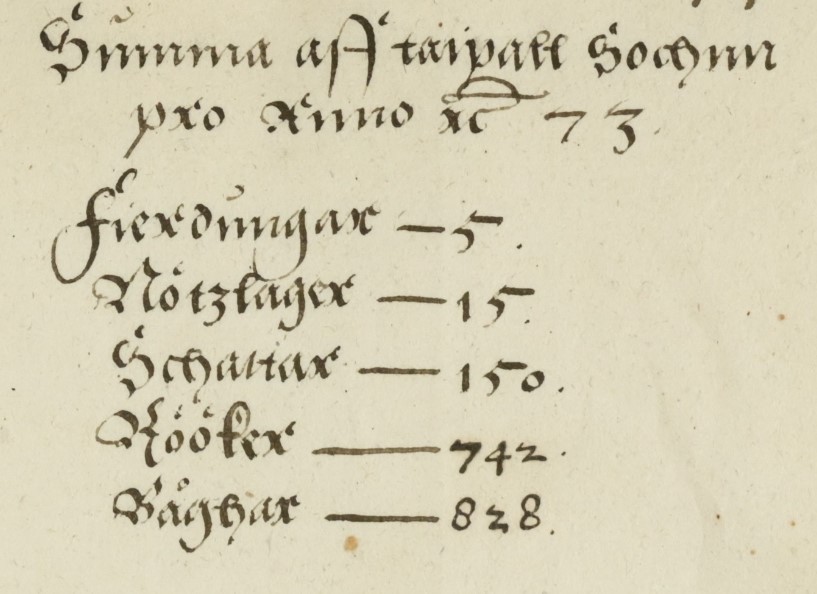 Summa aff taipall Sochnn
pro Anno xc 73.
Fierdungar — 5.
Nötzlager — 15.
Schattar — 150.
Röðker — 742.
Båghar — 828.